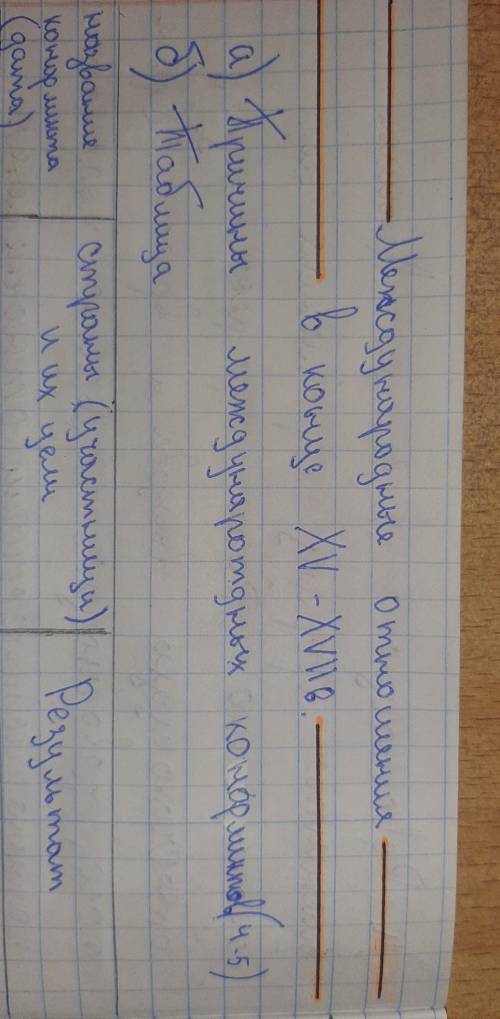 Международные отношения
в конце XV - XVIIв.
а) Причины международных конфликтов (4-5)
б) Таблица
название
конфликта
(дата)
страны (участницы)
и их цели
Результат